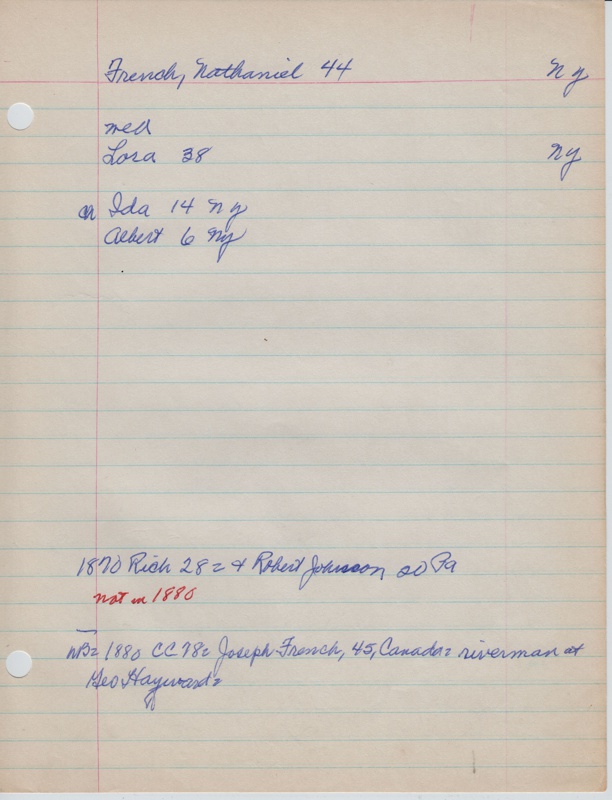 French, Nathaniel 44 NY
med
Lora 38 NY
ch Ida 14 NY
Albert 6 NY
1870 Rich 28 = & Robert Johnson 20 Pa
not in 1880
NB = 1880 CC 78 = Joseph French, 45, Canada = riverman at
Geo Hayward =